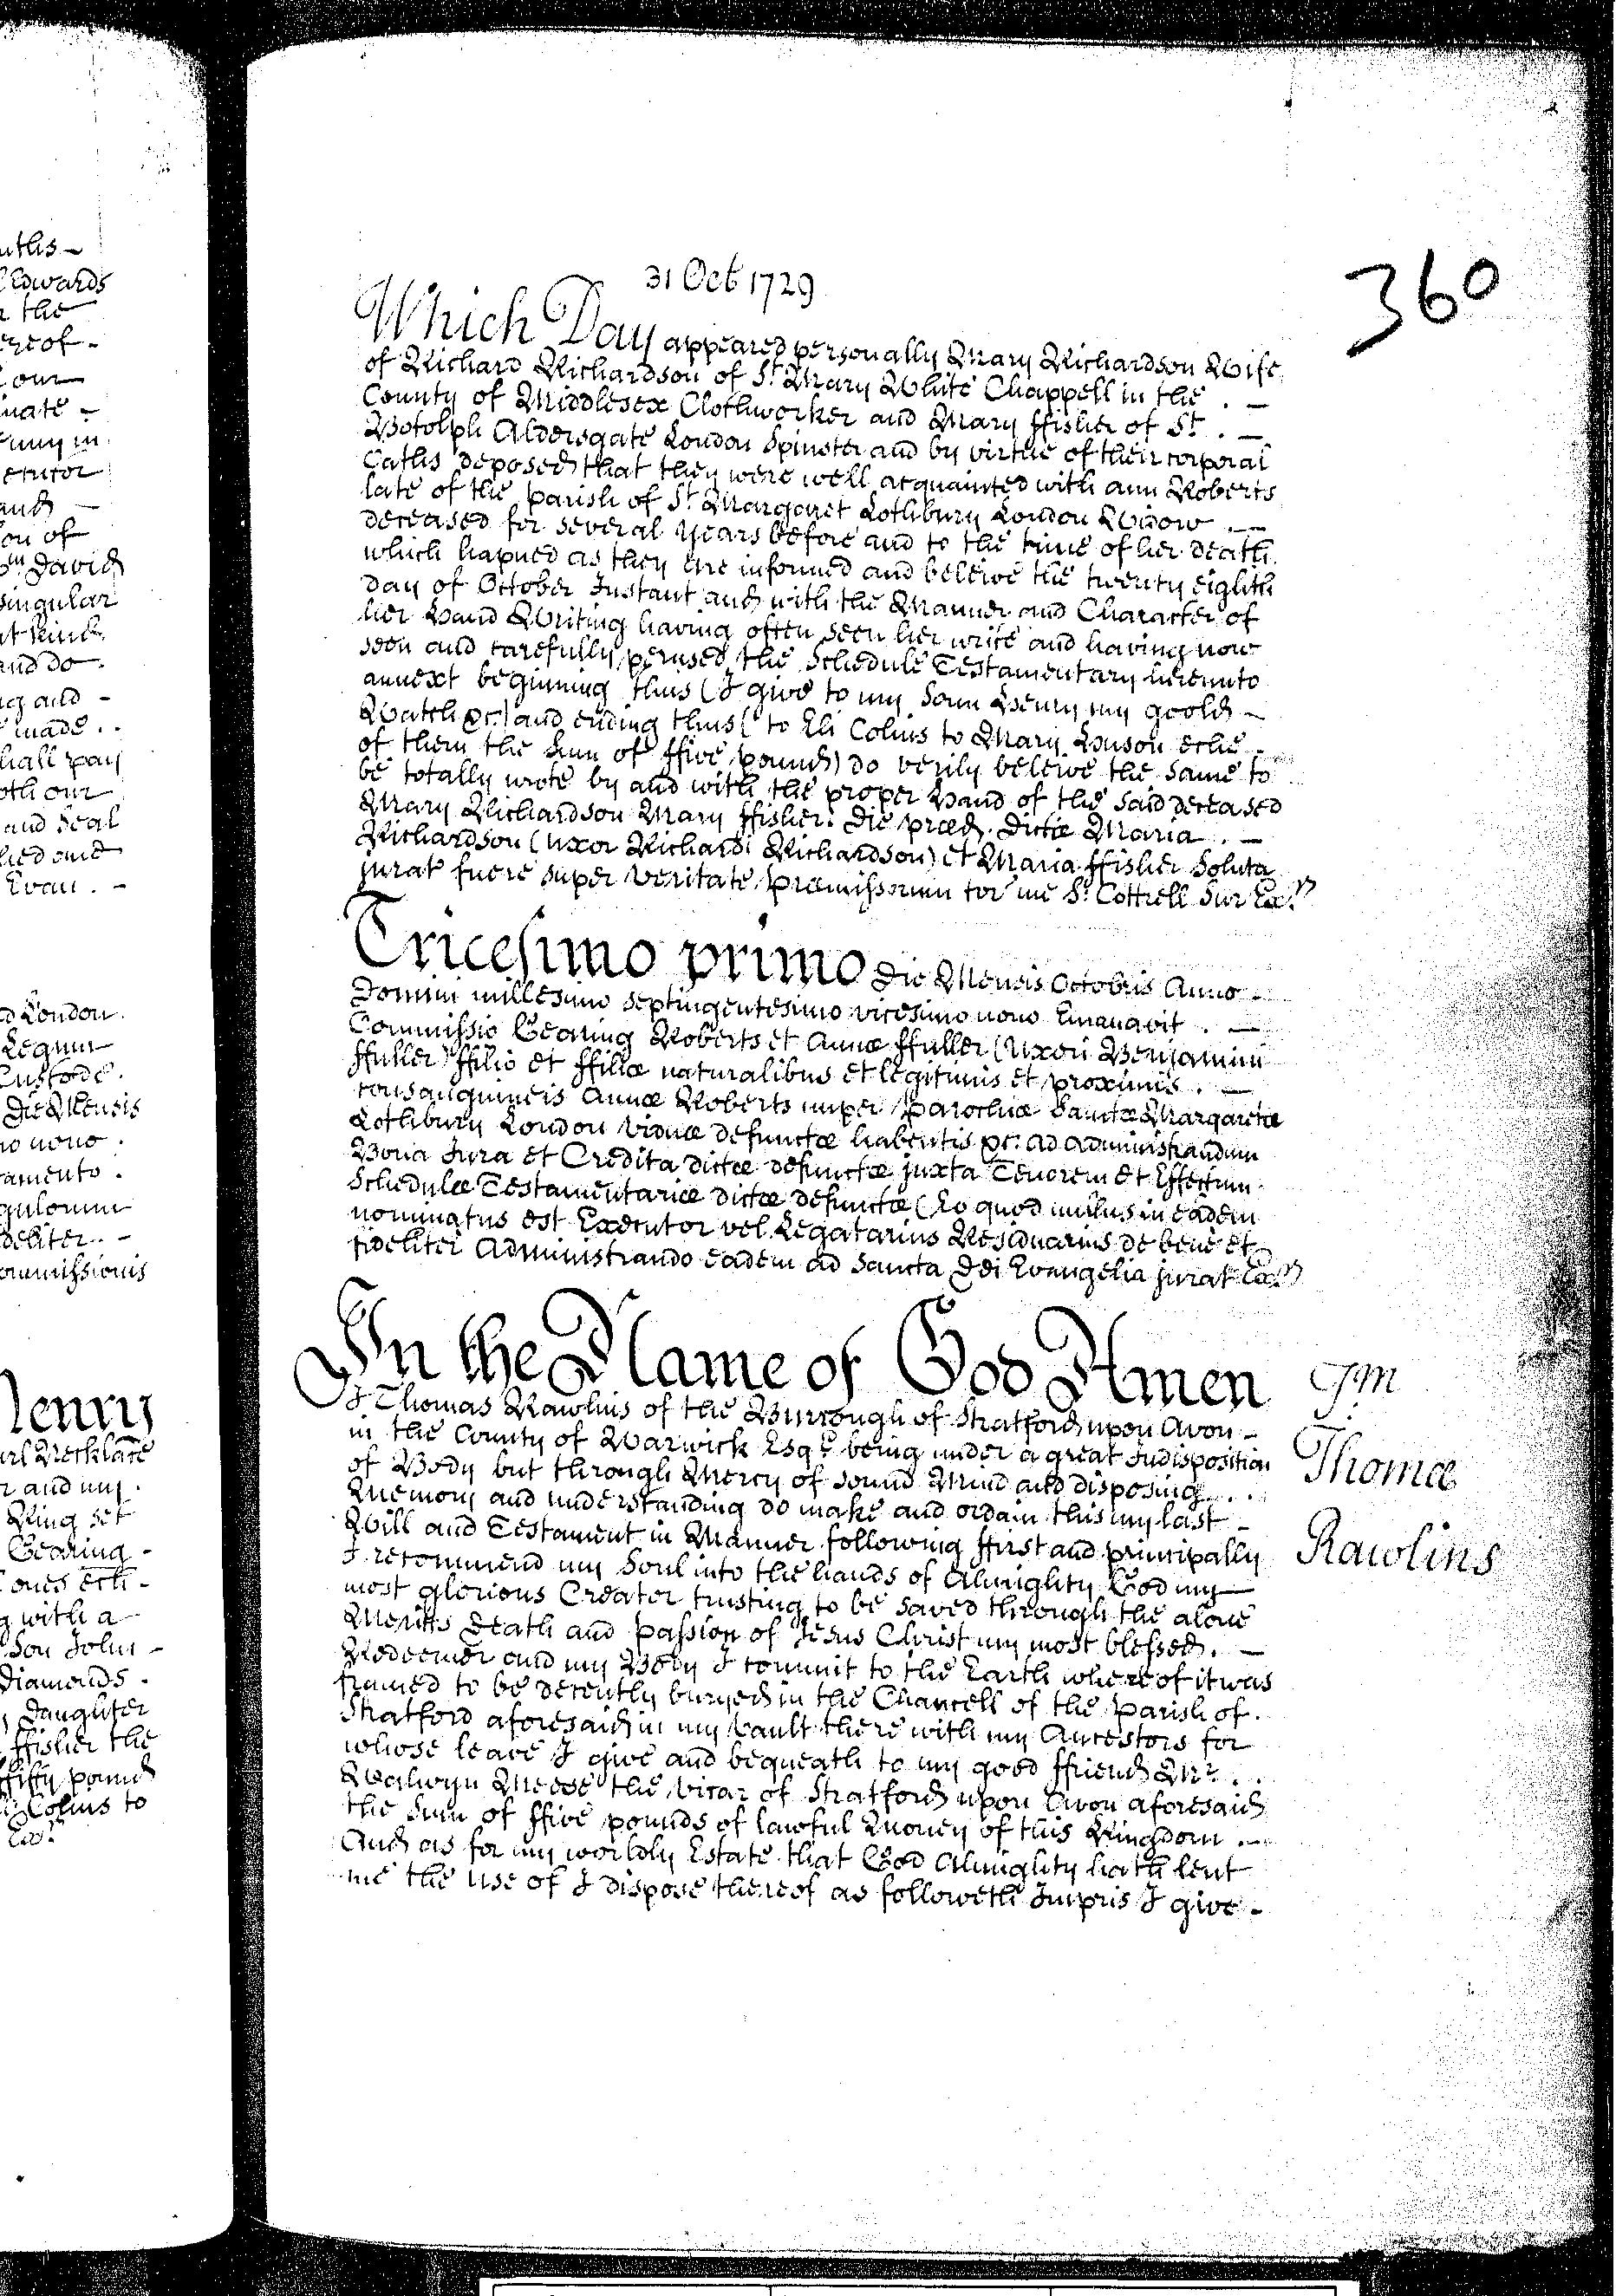 uths
Edwards
r the
ereof
our
inate
eruty in
ecutor
and
on of
David
singular
at kind
and do
ng and
made
hall pay
oth our
and Seal
lied and
Evan
d London
Legum
Custode
Die Mensis
no nono
tamento
gulorum
deliter
ommissionis
Henry
arl Necklace
r and my
Ring set
Gearing
g with a
Son John
Diamonds
Daughter
ffisher the
ffifty pound
Colins to
Exr
360
31 Oct 1729
Which Day appeared personally Mary Richardson Wife
of Richard Richardson of St Mary White Chappell in the
County of Middlesex Clothworker and Mary ffisher of St
Botolph Aldersgate London Spinster and by virtue of their corporal
Oaths deposed that they were well acquainted with ann Roberts
late of the parish of St Margaret Lothbury London Widow
deceased for several years before and to the time of her death
which hapned as they are informed and beleive the twenty eighth
day of October Instant and with the Manner and Character of
her Hand Writing having often seen her write and having now
seen and carefully perused the Schedule Testamentary hereunto
annext beginning thus (I give to my Sonn Henry my goold
Watch &c.) and ending thus (to Eli Colins to Mary Louson eche
of them the Sum of ffive pound) do verily beleive the same to
be totally wrote by and with the proper Hand of the said deceased
Mary Richardson Mary ffisher. Die præd. Dictæ Maria
Richardson (Uxor Richardi Richardson) et Maria ffisher Soluta
jurat fuere super veritate præmissorum cor me St. Cottrell Sur Exr
Tricesimo primo Die Mensis Octobris Anno
Domini millesimo septingentesimo vicesimo nono Emanavit
Commissio Gearing Roberts et Annæ ffuller (Uxori Benjamini
ffuller) ffilio et ffiliæ naturalibus et legitimis et proximis
consanguineis Annæ Roberts nuper parochiæ Sanctæ Margaretæ
Lothbury London viduæ defunctæ habentis &c. ad administrandum
Bona Jura et Credita dictæ defunctæ juxta Tenorem et Effectum
Schedulæ Testamentariæ dictæ defunctæ (Eo quod nullus in eadem
nominatus est Executor vel Legatarius Residuarius de bene et
fideliter Administrando eadem ad Sancta Dei Evangelia jurat Exr
In the Name of God Amen
I Thomas Rawlins of the Burrough of Stratford upon Avon
in the County of Warwick Esqr being under a great Indisposition
of Body but through Mercy of sound Mind and disposing
Memory and understanding do make and ordain this my last
Will and Testament in Manner following ffirst and principally
I recommend my Soul into the hands of Almighty God my
most glorious Creater trusting to be saved through the alone
Meritts Death and passion of Jesus Christ my most blessed
Redeemer and my Body I commit to the Earth whereof it was
framed to be decently buryed in the Chancell of the Parish of
Stratford aforesaid in my Vault there with my Ancestors for
whose leave I give and bequeath to my good ffriend Mr
Walwyn Meese the vicar of Stratford upon Avon aforesaid
the Sum of ffive pounds of lawful Money of this Kingdom
And as for my worldly Estate that God Almighty hath lent
me the use of I dispose thereof as followeth Impris I give
Tm
Thomæ
Rawlins